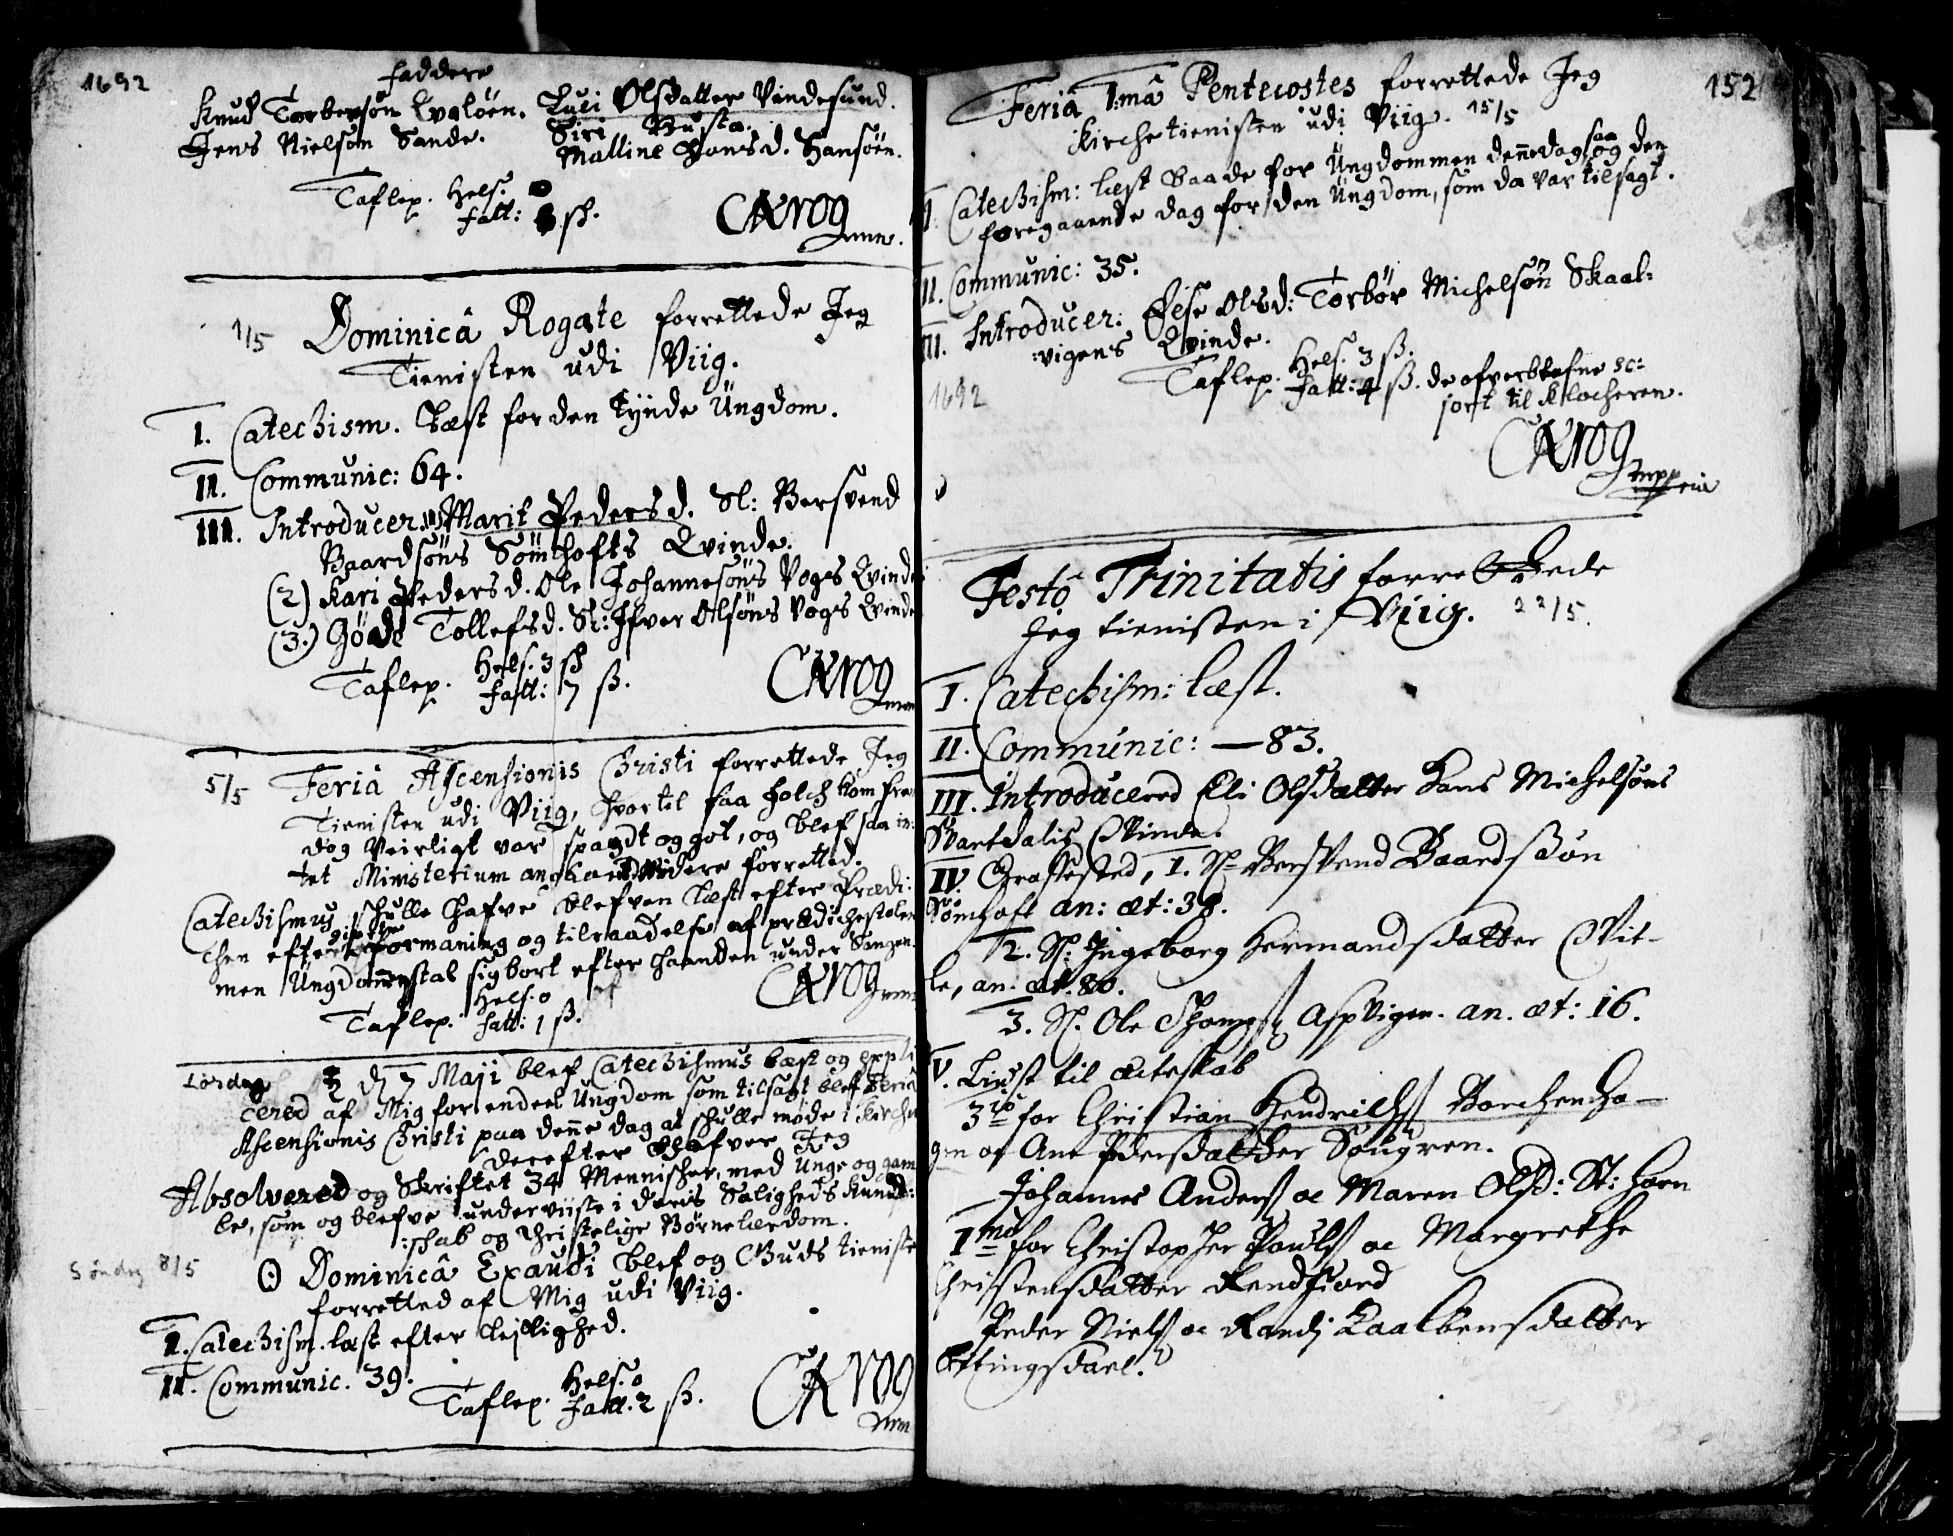 1692
faddere
Knud Torbersøn Qvaløen. Luci Olsdatter Vindesund.
Jens Nielsøn Sande. Siri Husta.
Malline Hansd. Hansøen.
Taflep. Helf. 0
fatt: ſs.
CKrog
mm.
1/5 Dominicâ Rogate forrettede Jeg
Tienisten udi Viig.
I. Catechism. Læst for den Tynde Ungdom.
II. Communic: 64.
III. Introducer. (1) Marit Pedersd. Sl: Bersvend
Baardsøns Sømhofts Qvinde.
(2) Kari Pedersd. Ole Johannesøns Vogs Qvinde
(3.) Gøade Tollefsd. Sl: Ifver Olsøns Vogs Qvinde
Taflep. Helf. 3 ſs
fatt: 7 ſs.
CKrog
5/5 Feriâ Ascensionis Christi forrettede Jeg
Tienisten udi Viig, hvortil faa folch kom fra
dog Veirligt var spagdt og got, og blef saa in:
tet Ministerium andet videre forretted.
Catechismus skulle hafve blefven læst efter Prædi:
chen efter formaning og tilraadelse af prædichestolen
men Ungdommen stal sig bort efter haanden under Sangen.
CKrog
Taflep. Helf. 0
fatt: 1 ſs.
Lørdag ♄ d. 7 Maji blef Catechismus læst og expli
cered af Mig for endeel Ungdom som tilsagt blef Feriâ
Ascensionis Christi paa denne dag at skulle møde i kirchen
derefter blefver Jeg
Absolvered og Skriftet 34 Mennischer, med Unge og gam
le, som og blefve underviiste i deris Saligheds Kund:
:schab og Christelige Børnelærdom.
Søndag 8/5 ☉ Dominicâ Exaudi blef og Guds tieniste
forretted af Mig udi Viig.
I. Catechism. læst efter Leilighed.
II. Communic. 39.
Taflep. Helf. 0
fatt. 2 ſs.
CKrog
mm
152
Feriâ 1mâ Pentecostes forrettede Jeg
Kirchetienisten udi Viig. 15/5
I. Catechism: læst baade for Ungdommen denne dag saa og den
foregaaende dag for den Ungdom, som da var tilsagt.
II. Communic: 35.
III. Introducer: Olsd: Torbør Michelsøn Skaal:
:vigens Qvinde.
1692
Taflep. Helf. 3 ſs.
fatt: 4 ſs. de
jort til Klocheren.
CKrog
Festô Trinitatis forrettede
Jeg tienisten i Viig. 22/5.
I. Catechism: læst.
II. Communic: — 83.
III. Introducered Elli Olsdatter Hans Michelsøns
Svartdalis Qvinde.
IV. Grafsted, 1. Sl. Bersvend Baardssøn
Sømhoft an: æt: 38.
2. Sl: Ingeborg Hermandsdatter Vit-
le, an. æt. 80.
3. Sl. Ole Thoms. Aspvigen. an. æt: 16.
V. Liust til ecteskab
3io for Christian Hendrichs. Borchenha-
gen oc Ane Pedersdatter Sougren.
Johannes Anders. oc Maren Olsd: St: Horn
1mo for Christopher Pouls. oc Margrethe
Christensdatter Rendfiord
Peder Niels. oc Randj Kaalbensdatter
Ottingsdael.